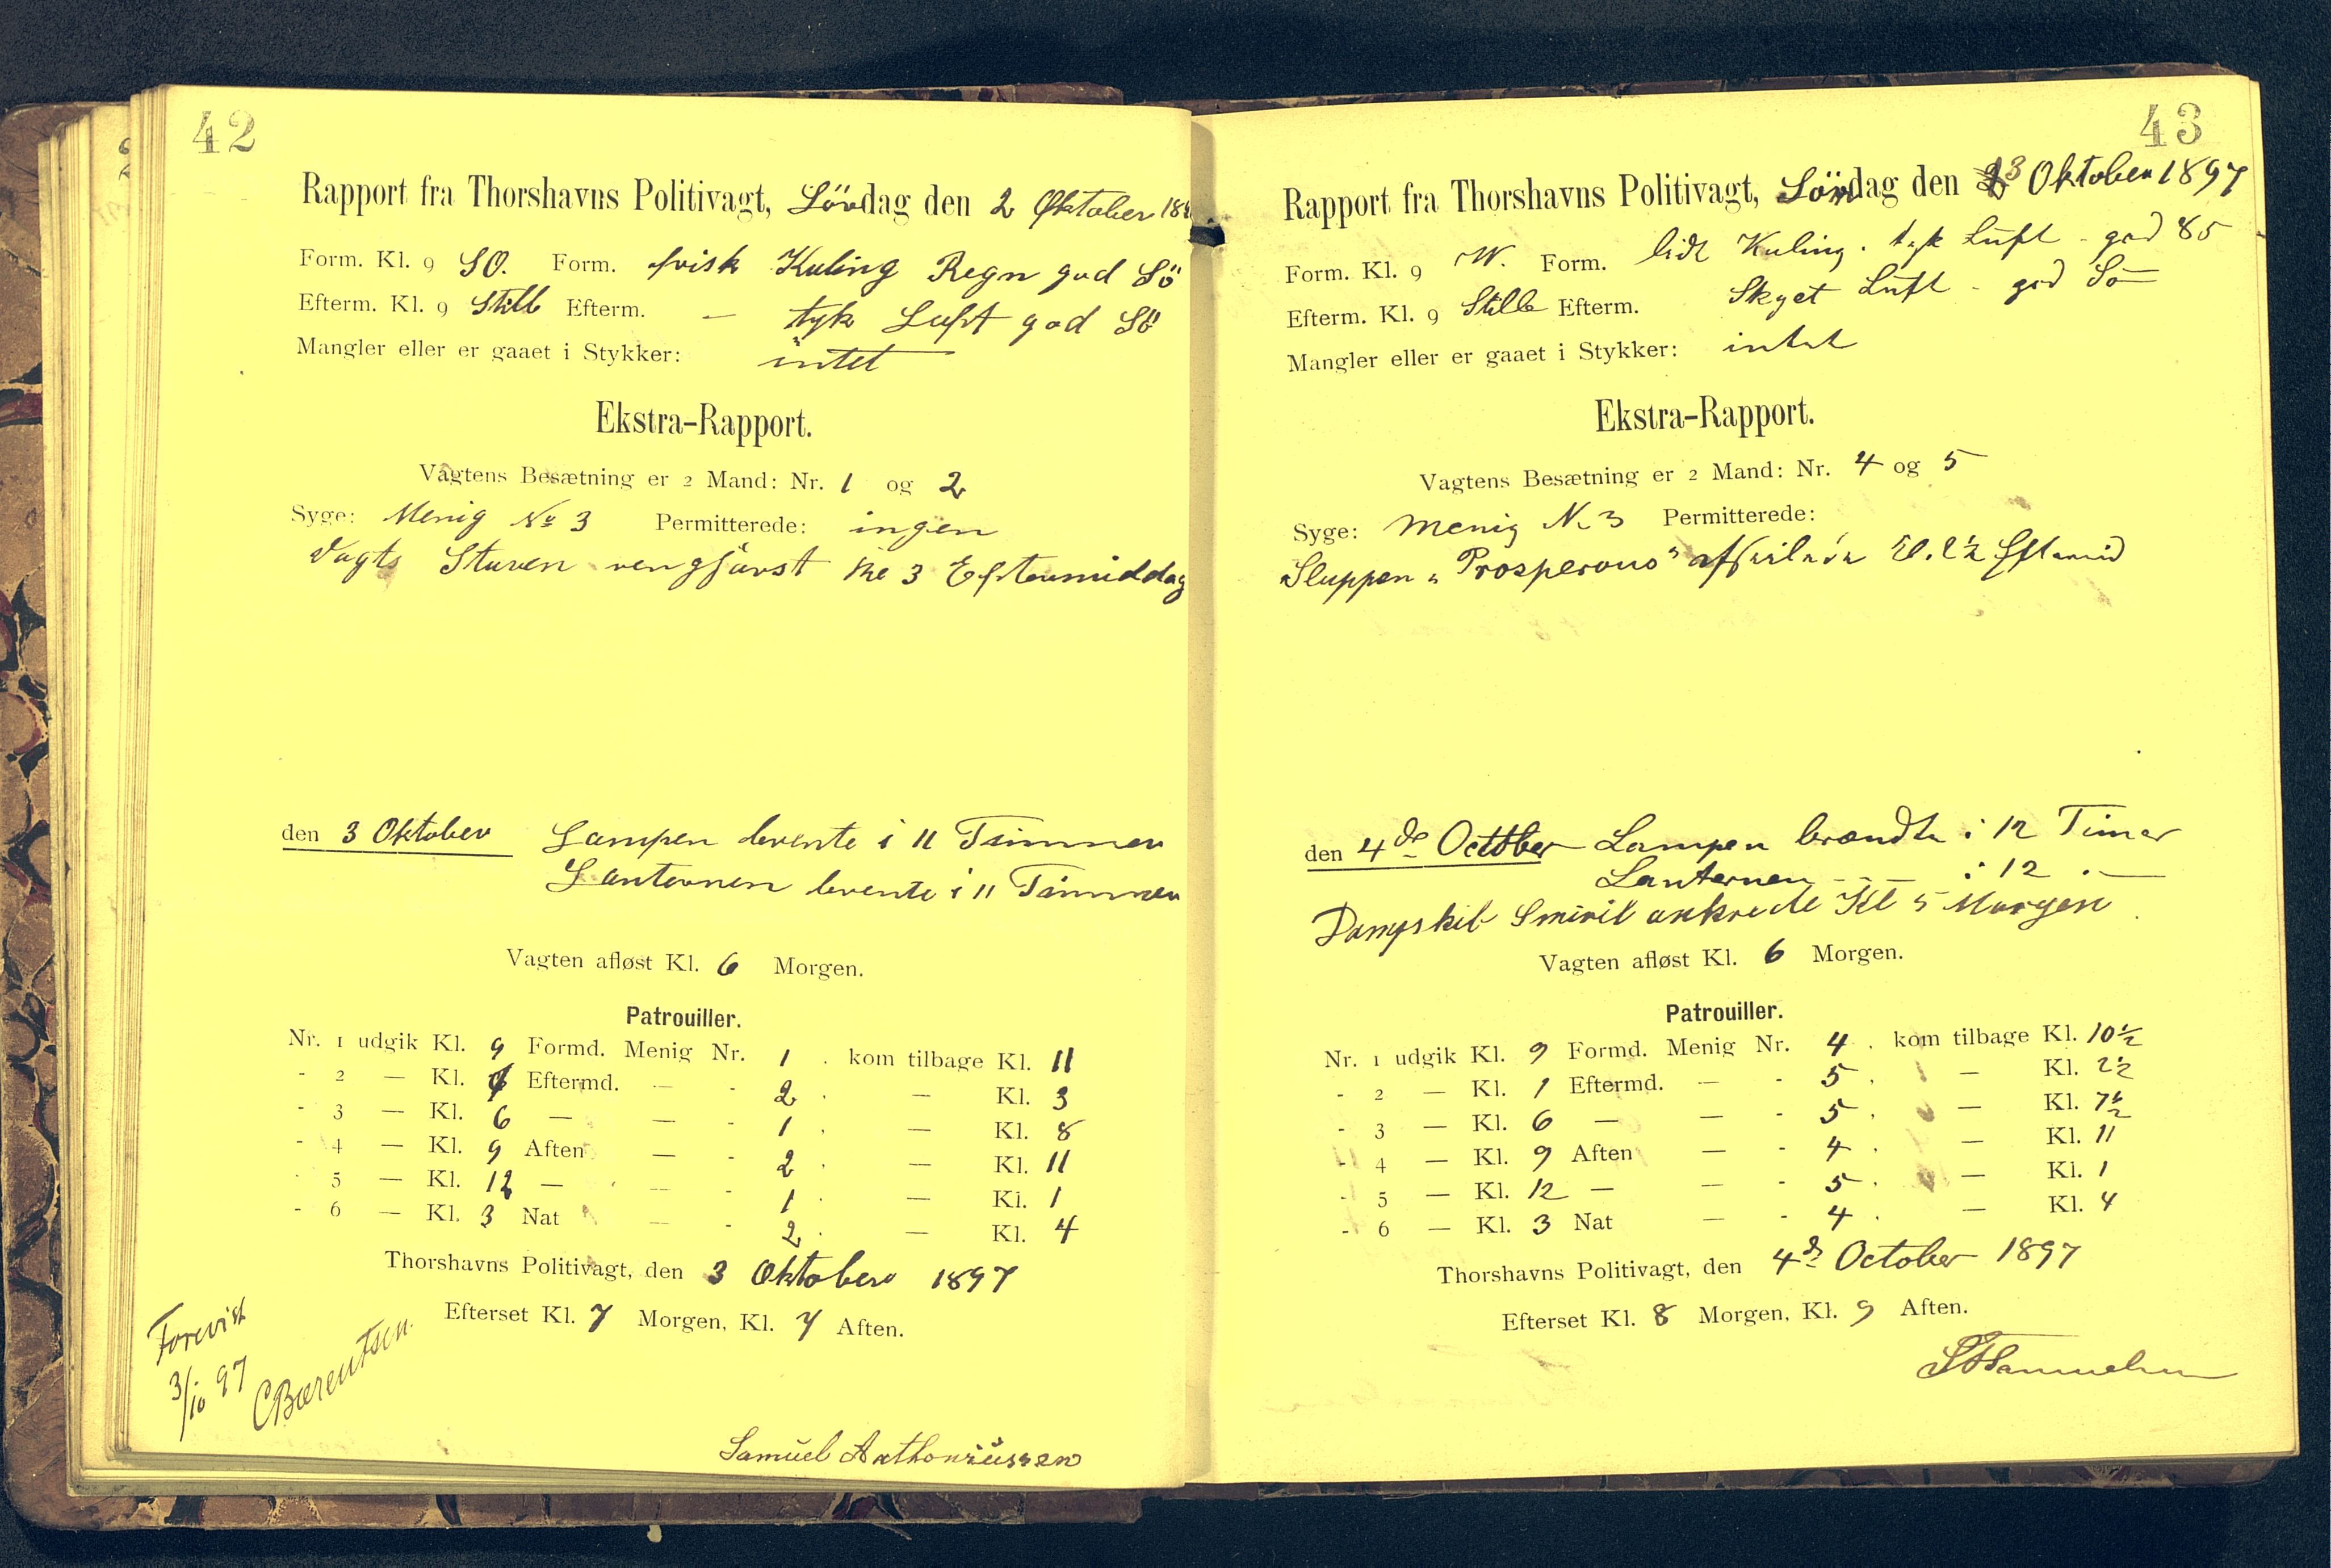 42
Rapport fra Thorshavns Politivagt, Lövdag den 2 Oktober 18
Form. Kl. 9 SO. Form. frisk Kuling Regn god Sö
Efterm. Kl. 9 Still Efterm. — tyk Luft god Sö
Mangler eller er gaaet i Stykker: intet
Ekstra-Rapport.
Vagtens Besætning er 2 Mand: Nr. 1 og 2
Syge: Menig No 3 Permitterede: ingen
Vagts Stuven rengjövst Kl 3 Eftermiddag
den 3 Oktober Lampen brente i 11 Timmer
Lanternen brente i 11 Timmer
Vagten afløst Kl. 6 Morgen.
Patrouiller.
Nr. 1 udgik Kl. 9 Formd. Menig Nr. 1 . kom tilbage Kl. 11
- 2 — Kl. Eftermd. — - 2 . — Kl. 3
- 3 — Kl. 6 — — - 1 . — Kl. 8
- 4 — Kl. 9 Aften — - 2 . — Kl. 11
- 5 — Kl. 12 — — - 1 . — Kl. 1
- 6 — Kl. 3 Nat — - 2 . — Kl. 4
Thorshavns Politivagt, den 3 Oktober 1897
Efterset Kl. 7 Morgen, Kl. 7 Aften.
Forevist
3/10 97
CBærentsen.
Samuel Anthoniussen
43
Rapport fra Thorshavns Politivagt, Söndag den 3 Oktober 1897
Form. Kl. 9 W. Form. lidt Kuling. tyk Luft - god Sö
Efterm. Kl. 9 Stille Efterm. Skyet Luft - god Sö
Mangler eller er gaaet i Stykker: intet
Ekstra-Rapport.
Vagtens Besætning er 2 Mand: Nr. 4 og 5
Syge: Menig N. 3 Permitterede:
Sluppen „Prosperous" afseilede Kl. 2½ Eftermid
den 4de October Lampen brændte i 12 Timer
Lanternen — — i 12 . —
Dampskib Smiril ankrede Kl 5 Morgen
Vagten afløst Kl. 6 Morgen.
Patrouiller.
Nr. 1 udgik Kl. 9 Formd. Menig Nr. 4 . kom tilbage Kl. 10½
- 2 — Kl. 1 Eftermd. — - 5 . — Kl. 2½
- 3 — Kl. 6 — — - 5 . — Kl. 7½
- 4 — Kl. 9 Aften — - 4 . — Kl. 11
- 5 — Kl. 12 — — - 5 . — Kl. 1
- 6 — Kl. 3 Nat — - 4 . — Kl. 4
Thorshavns Politivagt, den 4de October 1897
Efterset Kl. 8 Morgen, Kl. 9 Aften.